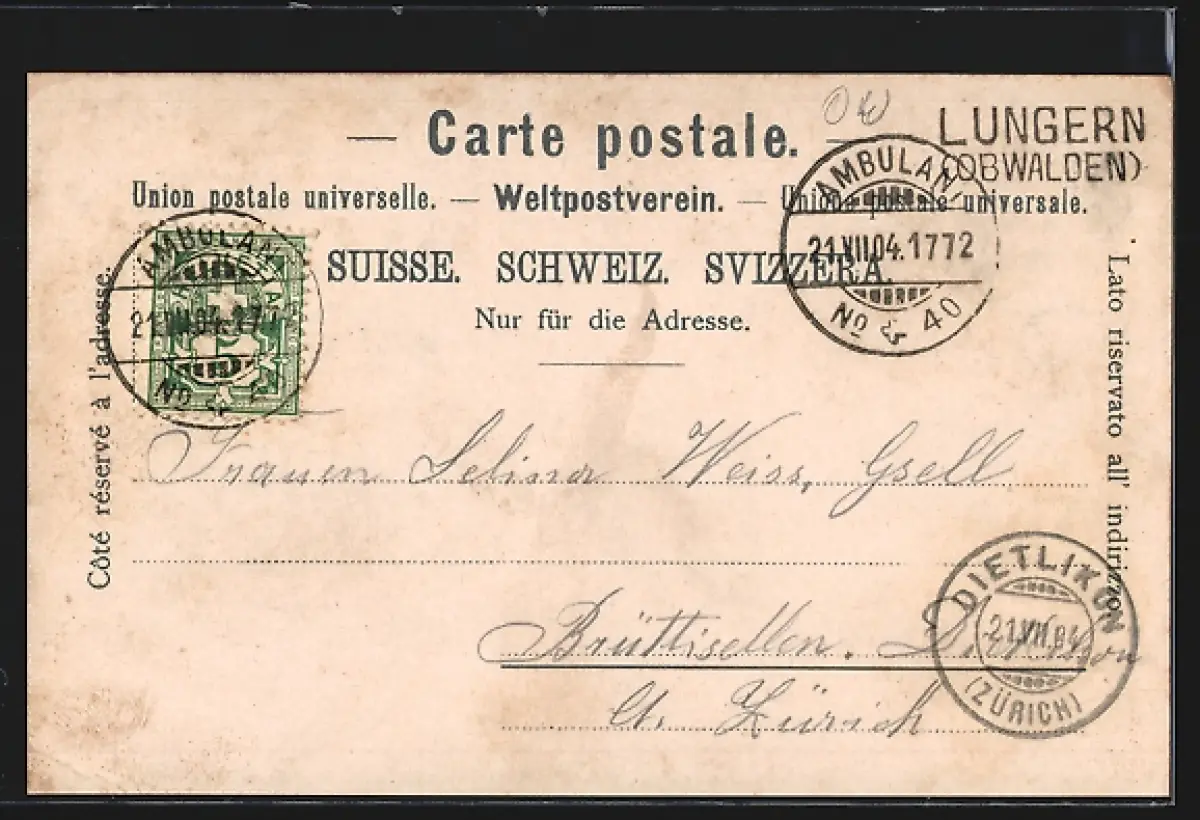 OW
— Carte postale. —
LUNGERN
(OBWALDEN)
Union postale universelle. — Weltpostverein. — Unione postale universale.
AMBULANT
21.VII.04.1772
No 40
AMBULAN
21.VII.04.177
No
SUISSE. SCHWEIZ. SVIZZERA.
Nur für die Adresse.
Côté réservé à l'adresse.
Lato riservato all' indirizzo.
5
Frauen Selina Weiss, Gsell
Brüttisellen. Dietlikon
Ct. Zürich
DIETLIKON
21.VII.04
(ZÜRICH)